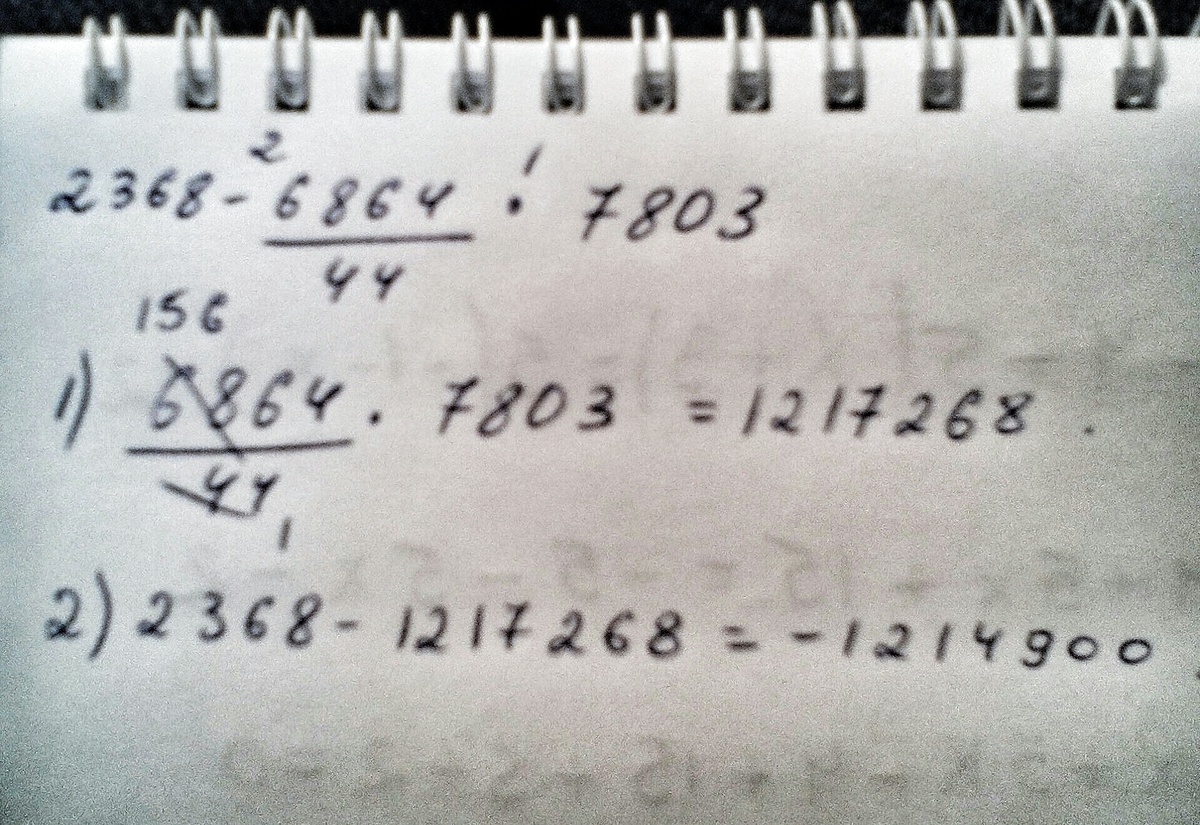 2 1
2368 - 6864/44 · 7803
156
1) 6864/44 · 7803 = 1217268.
1
2) 2368 - 1217268 = -1214900